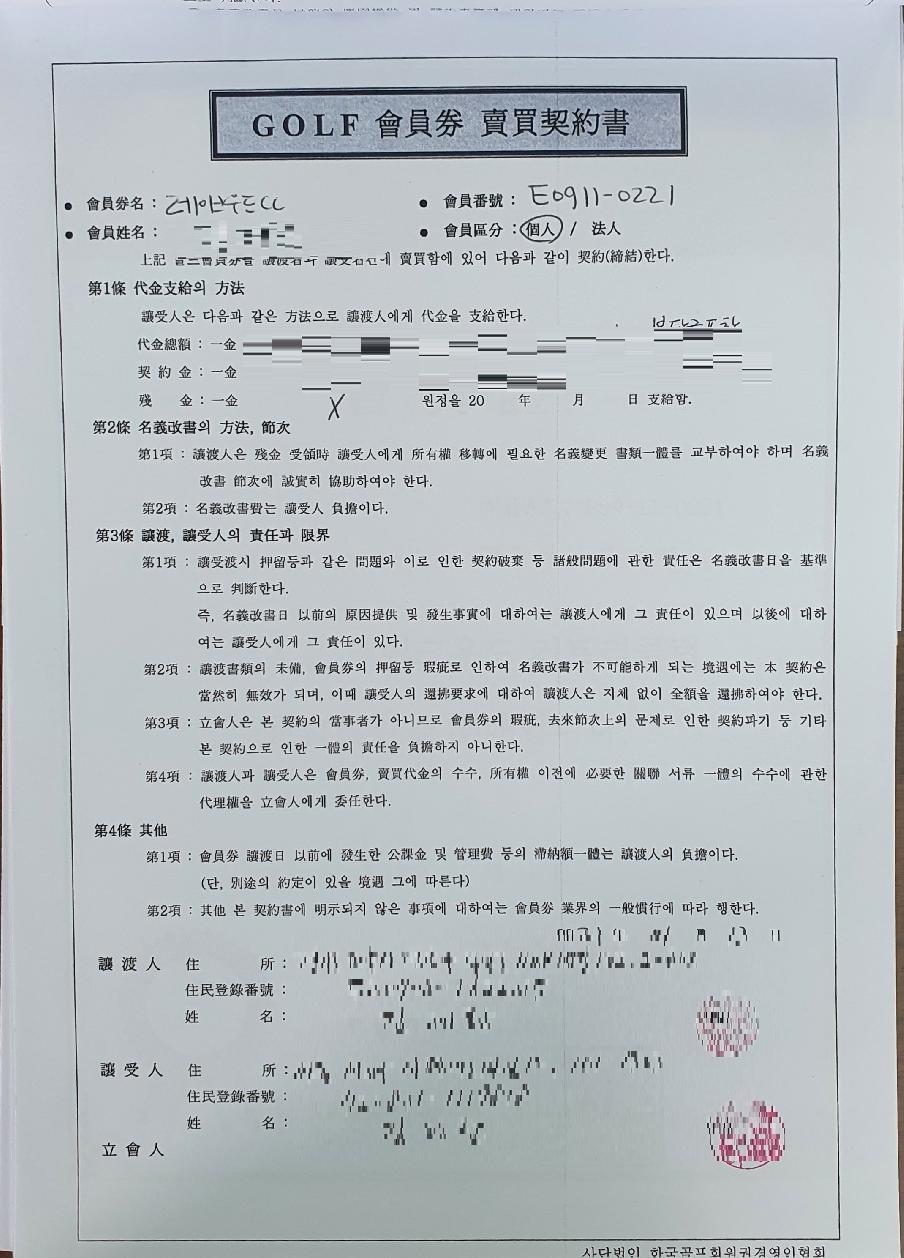 GOLF 會員券 賣買契約書
• 會員券名 : 레이크우드CC
• 會員番號 : E0911-0221
• 會員姓名 :
• 會員區分 : 個人 / 法人
上記 賣買함에 있어 다음과 같이 契約(締結)한다.
第1條 代金支給의 方法
讓受人은 다음과 같은 方法으로 讓渡人에게 代金을 支給한다.
代金總額 : 一金
契 約 金 : 一金
殘 金 : 一金 X 원정을 20 年 月 日 支給함.
第2條 名義改書의 方法, 節次
第1項 : 讓渡人은 殘金 受領時 讓受人에게 所有權 移轉에 필요한 名義變更 書類一體를 교부하여야 하며 名義
改書 節次에 誠實히 協助하여야 한다.
第2項 : 名義改書費는 讓受人 負擔이다.
第3條 讓渡, 讓受人의 責任과 限界
第1項 : 讓受渡시 押留등과 같은 問題와 이로 인한 契約破棄 등 諸般問題에 관한 責任은 名義改書日을 基準
으로 判斷한다.
즉, 名義改書日 以前의 原因提供 및 發生事實에 대하여는 讓渡人에게 그 責任이 있으며 以後에 대하
여는 讓受人에게 그 責任이 있다.
第2項 : 讓渡書類의 未備, 會員券의 押留등 瑕疵로 인하여 名義改書가 不可能하게 되는 境遇에는 本 契約은
當然히 無效가 되며, 이때 讓受人의 還拂要求에 대하여 讓渡人은 지체 없이 全額을 還拂하여야 한다.
第3項 : 立會人은 본 契約의 當事者가 아니므로 會員券의 瑕疵, 去來節次上의 문제로 인한 契約파기 등 기타
본 契約으로 인한 一體의 責任을 負擔하지 아니한다.
第4項 : 讓渡人과 讓受人은 會員券, 賣買代金의 수수, 所有權 이전에 必要한 關聯 서류 一體의 수수에 관한
代理權을 立會人에게 委任한다.
第4條 其他
第1項 : 會員券 讓渡日 以前에 發生한 公課金 및 管理費 등의 滯納額一體는 讓渡人의 負擔이다.
(단, 別途의 約定이 있을 境遇 그에 따른다)
第2項 : 其他 본 契約書에 明示되지 않은 事項에 대하여는 會員券 業界의 一般慣行에 따라 행한다.
讓 渡 人 住 所 :
住民登錄番號 :
姓 名 :
讓 受 人 住 所 :
住民登錄番號 :
姓 名 :
立 會 人
사단법인 한국골프회원권경영인협회